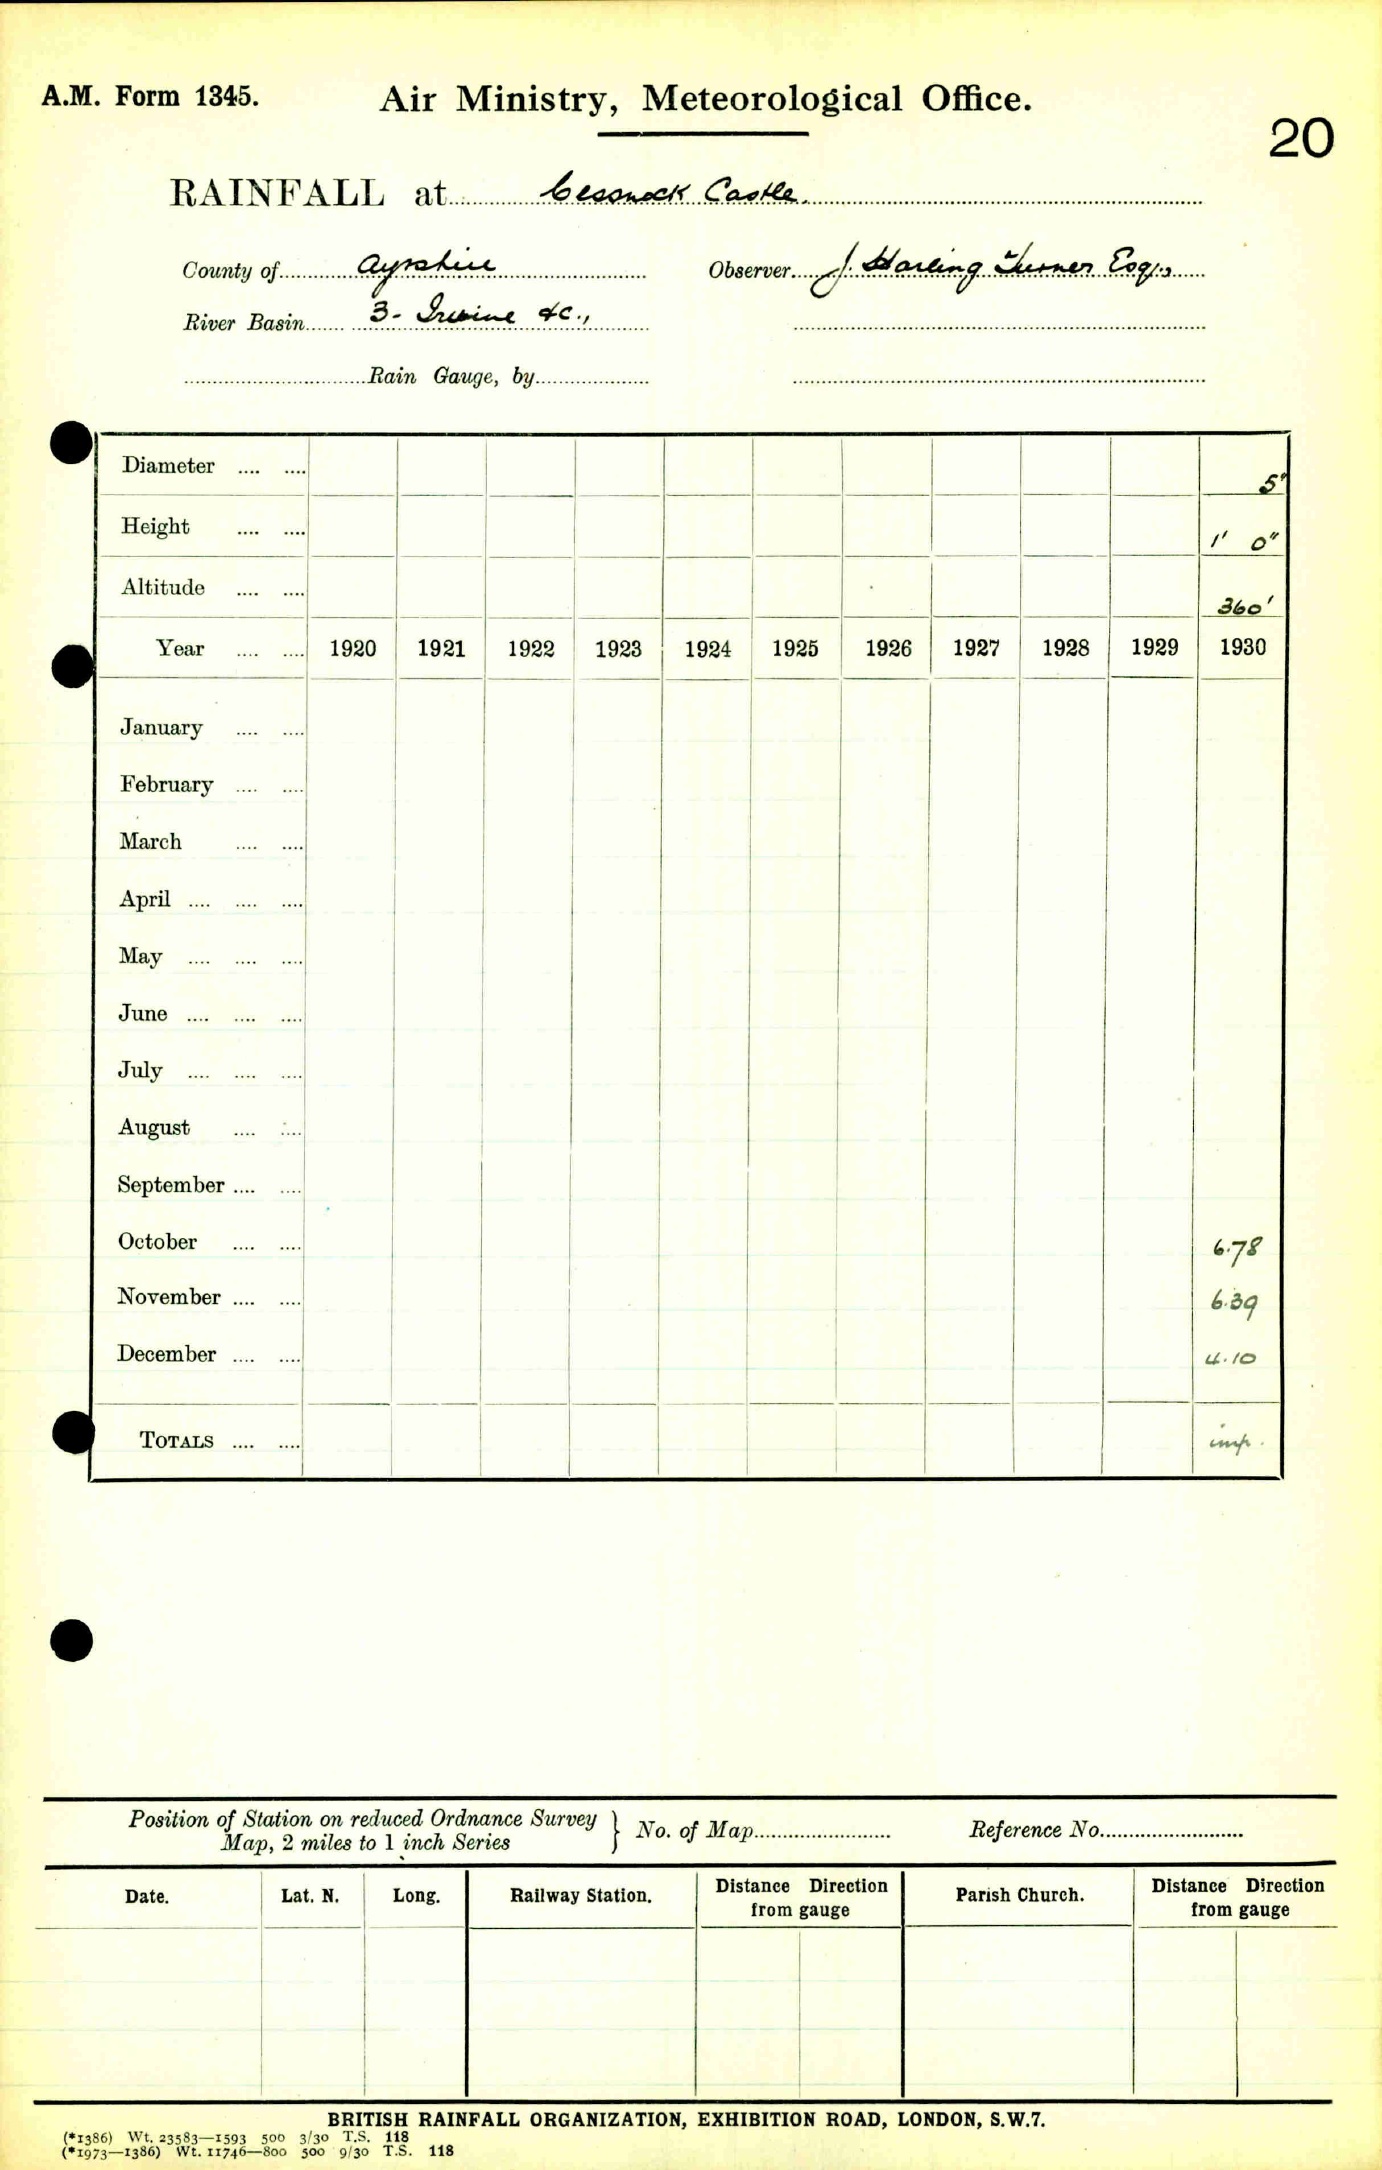 A.M. Form 1345.
Air Ministry, Meteorological Office.
20
RAINFALL at Cessnock Castle.
County of Ayrshire
Observer J. Harling Turner Esq.,
River Basin 3- Irvine &c.,
Rain Gauge, by
Diameter .... .... 5"
Height .... .... 1' 0"
Altitude .... .... 360'
Year .... .... 1920 1921 1922 1923 1924 1925 1926 1927 1928 1929 1930
January .... ....
February .... ....
March .... ....
April .... .... ....
May .... .... ....
June .... .... ....
July .... .... ....
August .... ....
September .... ....
October .... .... 6.78
November .... .... 6.39
December .... .... 4.10
TOTALS .... .... imp.
Position of Station on reduced Ordnance Survey
Map, 2 miles to 1 inch Series } No. of Map Reference No.
Date. Lat. N. Long. Railway Station. Distance Direction from gauge Parish Church. Distance Direction from gauge
BRITISH RAINFALL ORGANIZATION, EXHIBITION ROAD, LONDON, S.W.7.
(*1386) Wt. 23583—1593 500 3/30 T.S. 118
(*1973—1386) Wt. 11746—800 500 9/30 T.S. 118